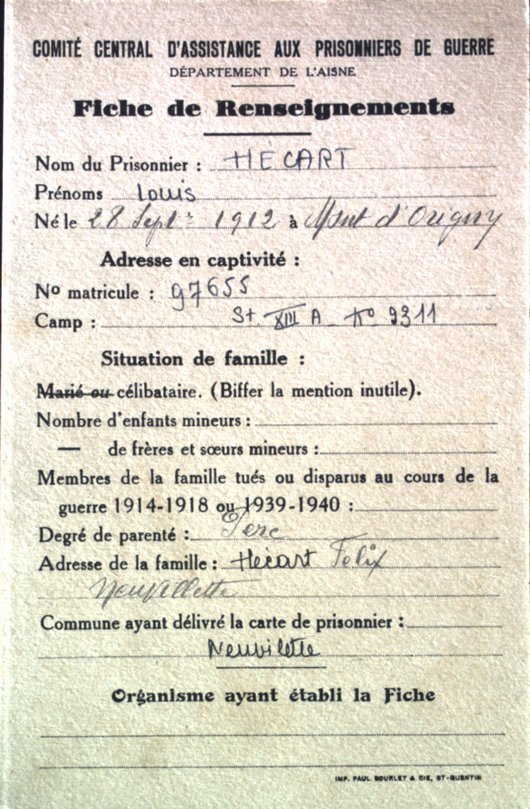 COMITÉ CENTRAL D'ASSISTANCE AUX PRISONNIERS DE GUERRE
DÉPARTEMENT DE L'AISNE
Fiche de Renseignements
Nom du Prisonnier : HÈCART
Prénoms Louis
Né le 28 Sept. 1912 à Mont d'Origny
Adresse en captivité :
No matricule : 97655
Camp : St. XIII A No 9311
Situation de famille :
Marié ou célibataire. (Biffer la mention inutile).
Nombre d'enfants mineurs :
— de frères et sœurs mineurs :
Membres de la famille tués ou disparus au cours de la
guerre 1914-1918 ou 1939-1940 :
Degré de parenté : Père
Adresse de la famille : Hècart Felix
Neuvillette
Commune ayant délivré la carte de prisonnier :
Neuvilette
Organisme ayant établi la Fiche
IMP. PAUL BOURLEY & CIE, ST-QUENTIN